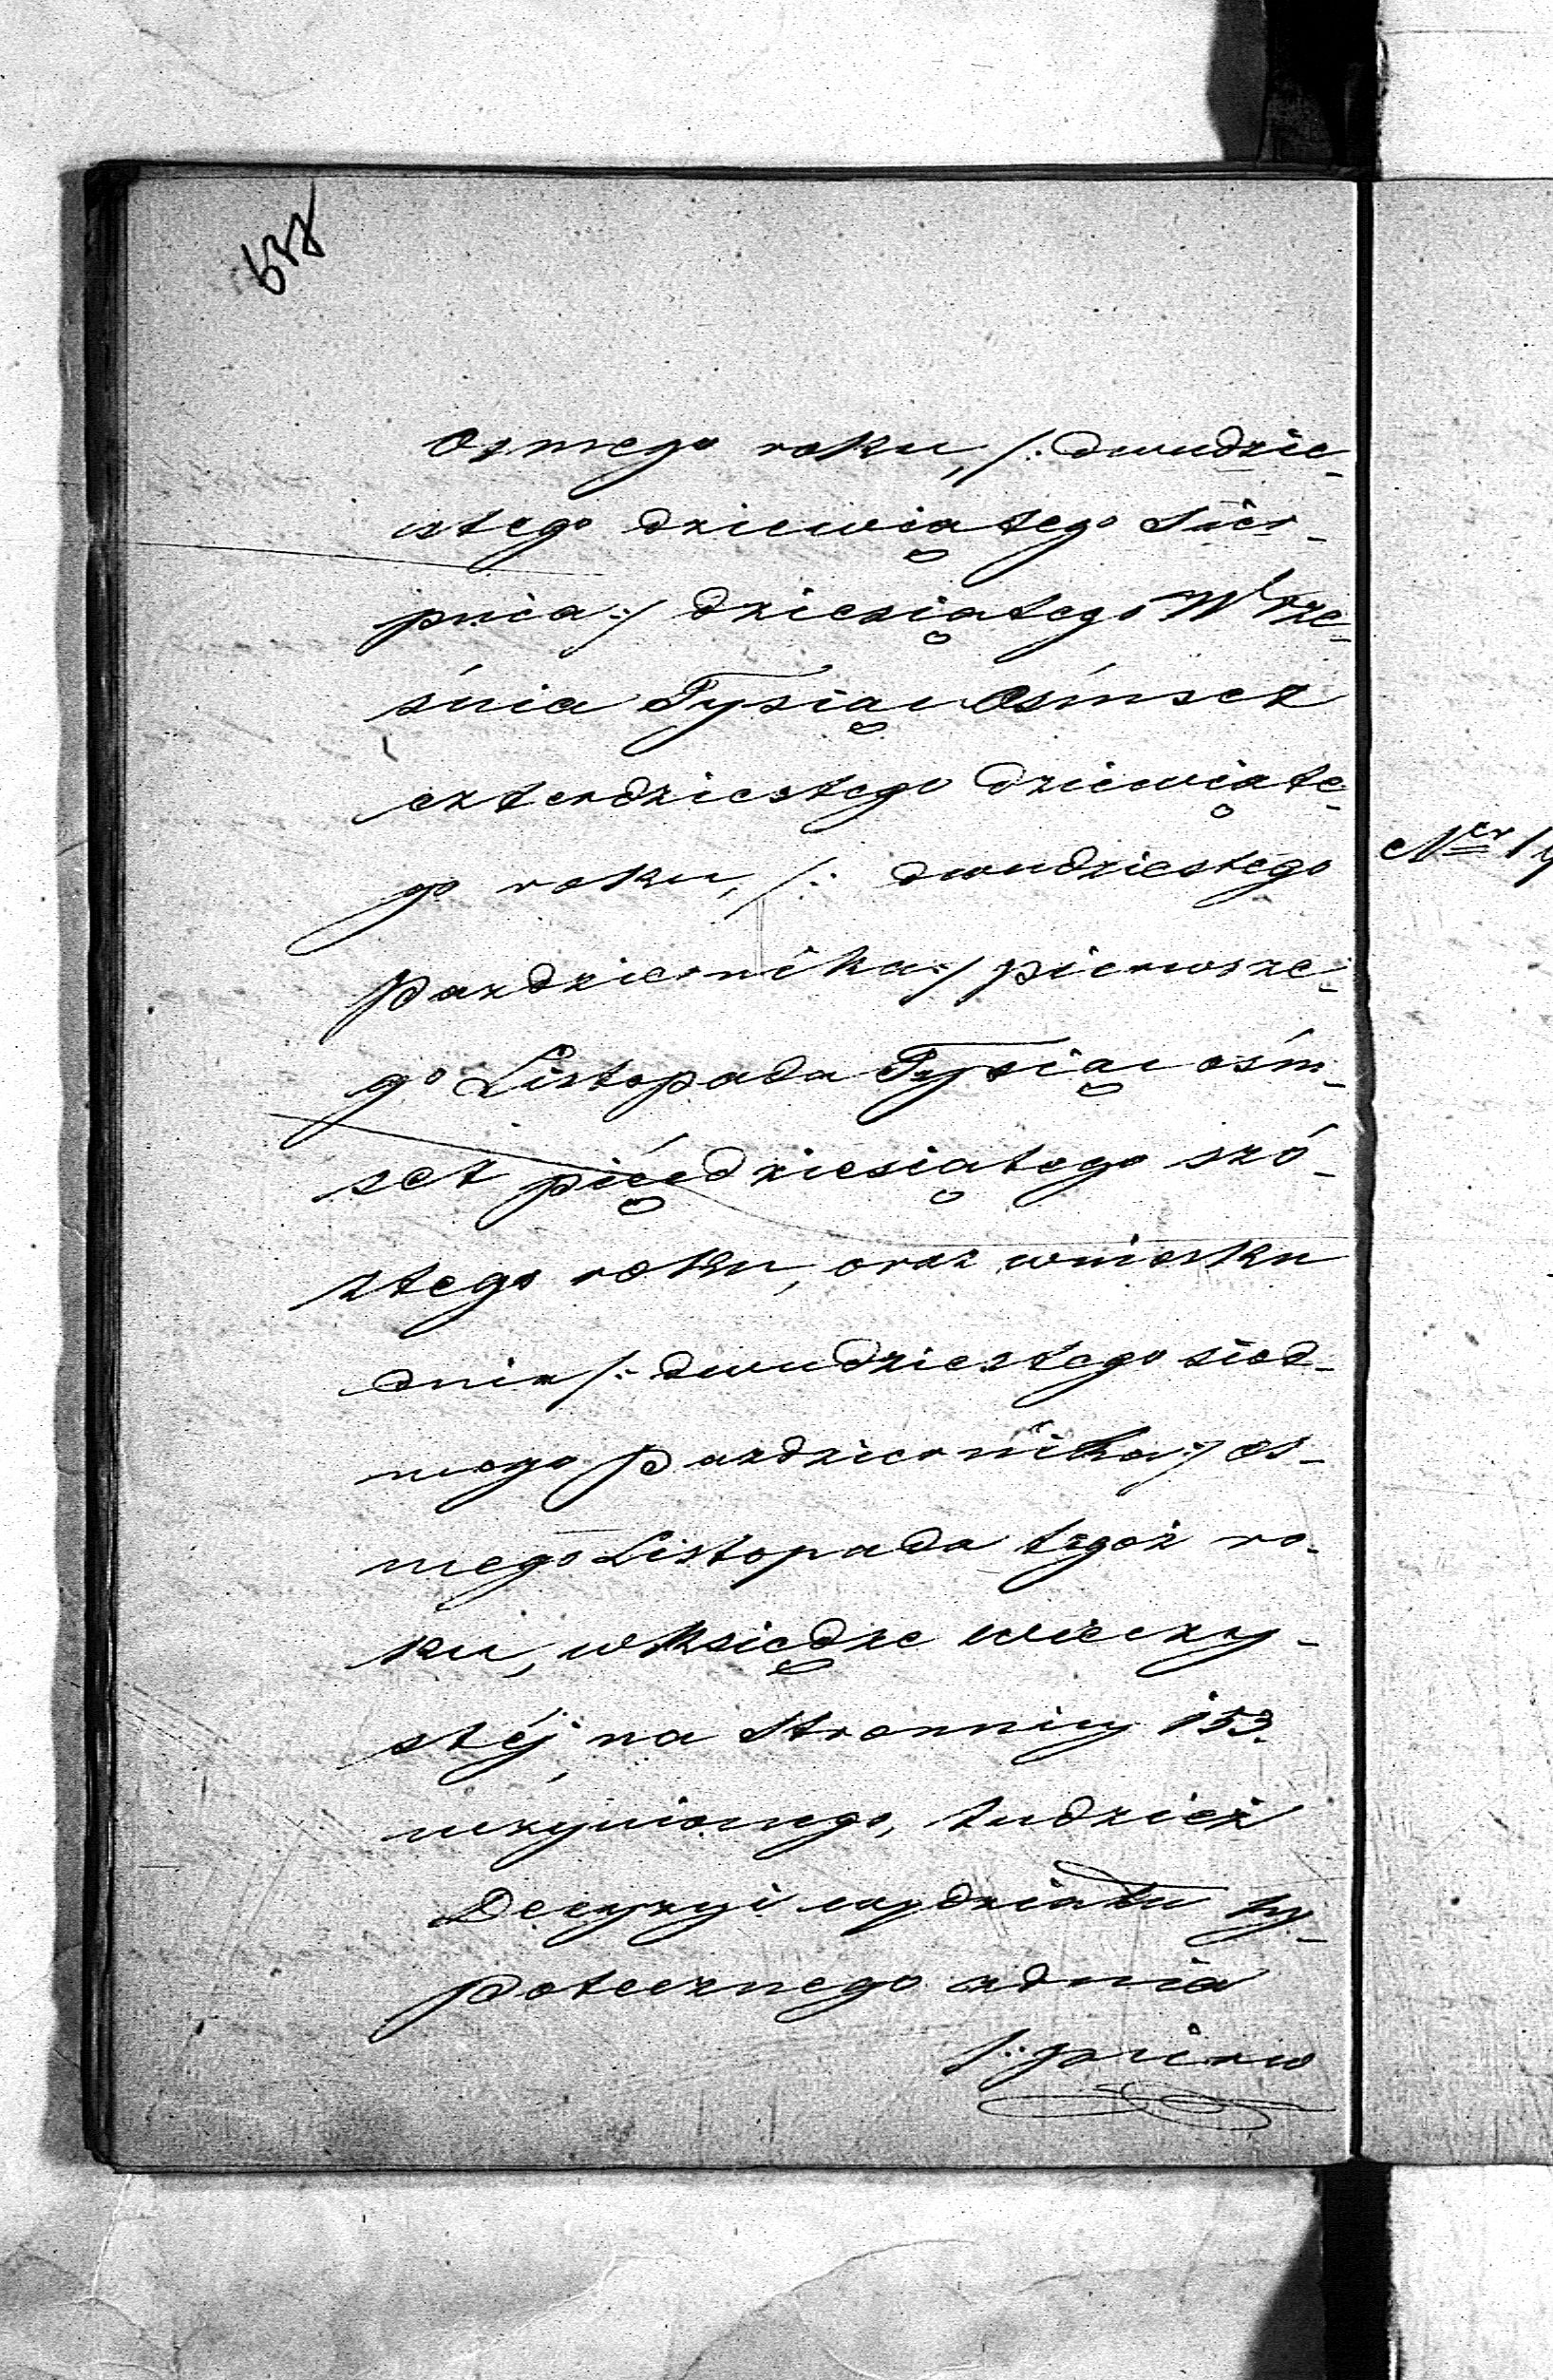 637
Osmego roku, /: dwudzie-
stego dziewiątego Sier-
pnia :/ dziesiątego Wrze-
śnia Tysiąc Ośmset
czterdziestego dziewiąte-
go roku, /: dwudziestego
Pazdziernika :/ pierwsze-
go Listopada Tysiąc ośm-
set pięćdziesiątego szó-
stego roku, oraz wniosku
dnia /: dwudziestego siód-
mego Pazdziernika :/ os-
mego Listopada tegoż ro-
ku, w Księdze wieczy-
stéj, na Stronnicy 153.
uczynionego, tudzież
Decyzyi wydziału hy-
potecznego z dnia
/: pierw
Ner 1